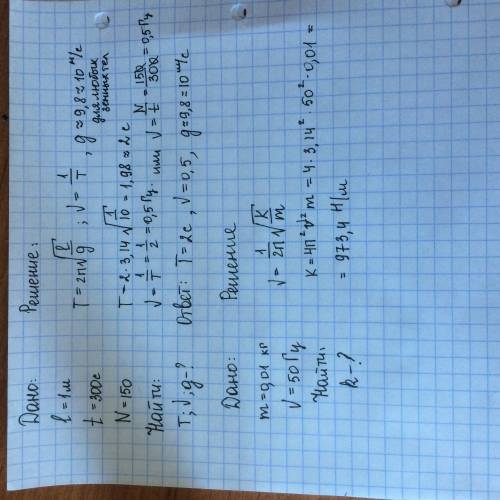 Дано:
l = 1 м
t = 300с
N = 150
Найти:
T; ν; g - ?
Решение:
T = 2π√l/g ; ν = 1/T , g ≈ 9,8 ≈ 10 м/с
для любых
T = 2·3,14 √1/10 = 1,98 ≈ 2 с
ν = 1/T = 1/2 = 0,5 Гц или ν = N/t = 150/300 = 0,5 Гц
Ответ: T = 2с, ν = 0,5, g ≈ 9,8 ≈ 10 м/с
Дано:
m = 0,01 кг
ν = 50 Гц
Найти:
k - ?
Решение
ν = 1/2π √K/m
K = 4π²ν²m = 4·3,14²·50²·0,01 =
= 973,4 Н/м